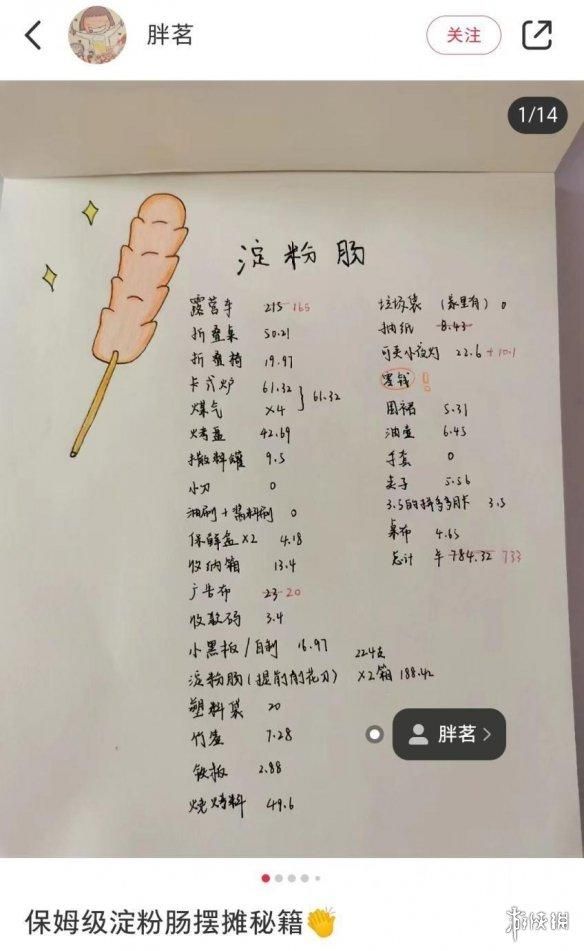 胖茗
关注
1/14
淀粉肠
露营车 215 165
折叠桌 50.21
折叠椅 19.97
卡式炉 61.32
煤气 ×4 } 61.32
烤盘 42.69
撒料罐 9.5
小刀 0
油刷+酱料刷 0
保鲜盒×2 4.18
收纳箱 13.4
广告布 23 20
收款码 3.4
小黑板/自制 16.97
淀粉肠(提前削花刀) 224支 ×2箱 188.42
塑料袋 20
竹签 7.28
铁板 2.88
烧烤料 49.6
垃圾袋 (家里有) 0
抽纸 8.43
可夹小夜灯 22.6+10.1
零钱!
围裙 5.31
油壶 6.45
手套 0
夹子 5.56
3.5的拼多多月卡 3.5
桌布 4.65
总计 ¥ 784.32 733
胖茗
保姆级淀粉肠摆摊秘籍👏
游侠网